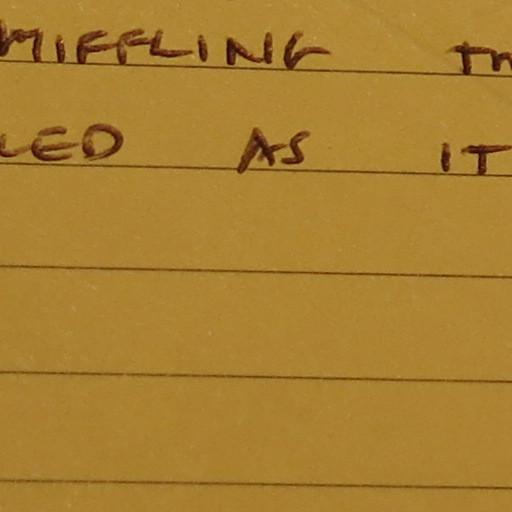 MIFFLING TH
LED AS IT